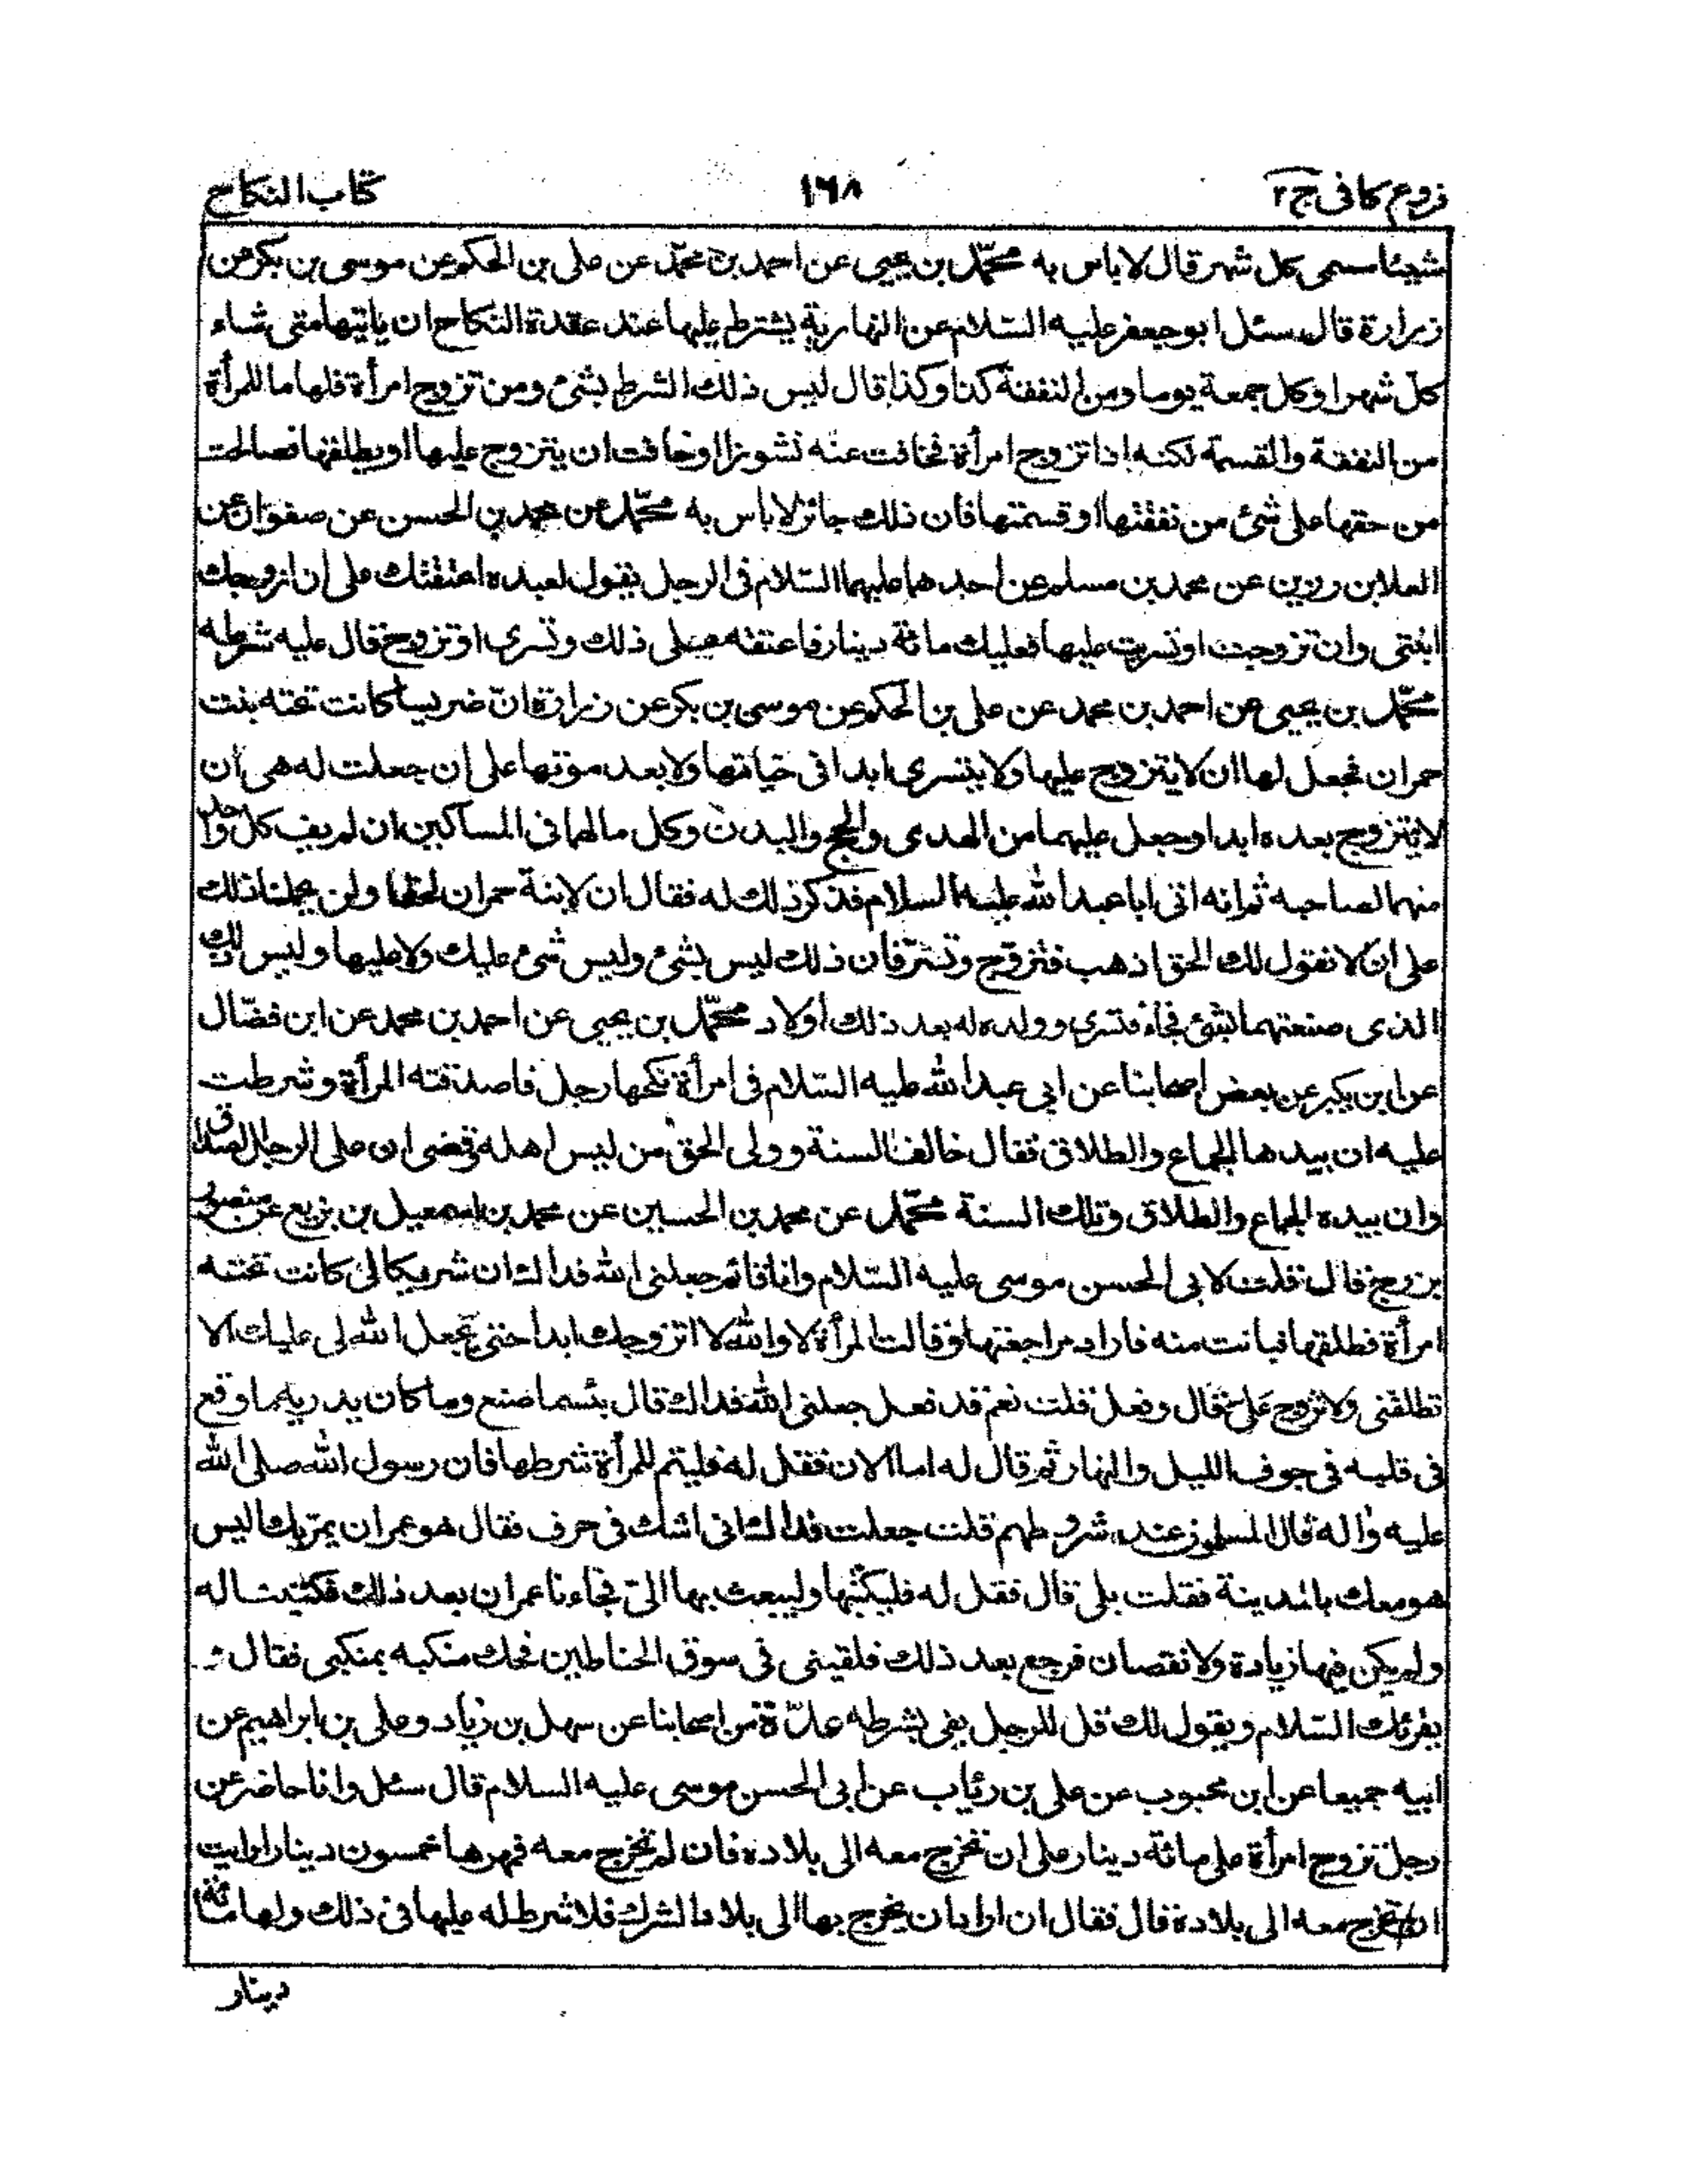 فروع كافى ج٢
١٦٨
كتاب النكاح
شيئا سمى كل شهر قال لا باس به محمّد بن يحيى عن احمد بن محمّد عن على بن الحكم عن موسى بن بكر عن
زرارة قال سئل ابو جعفر عليه السّلام عن النهارية يشترط عليها عند عقدة النكاح ان ياتيها متى شاء
كلّ شهر او كل جمعة يوما ومن النفقة كذا وكذا قال ليس ذلك الشرط بشئ ومن تزوج امرأة فلها ما للمرأة
من النفقة والقسمة لكنه اذا تزوج امرأة فخافت عنه نشوزا او خافت ان يتزوج عليها او يطلقها فصالحت
من حقها على شئ من نفقتها او قسمتها فان ذلك جائز لا باس به محمّد عن محمد بن الحسن عن صفوان عن
العلا بن رزين عن محمد بن مسلم عن احدهما عليهما السّلام فى الرجل يقول لعبده اعتقتك على ان ازوجك
ابنتى وان تزوجت او تسريت عليها فعليك مائة دينار فاعتقه على ذلك وتسرى او تزوج قال عليه شرطه
محمّد بن يحيى عن احمد بن محمد عن على بن الحكم عن موسى بن بكر عن زرارة ان ضريسا كانت تحته بنت
حمران فجعل لها ان لا يتزوج عليها ولا يتسرى ابدا فى حياتها ولا بعد موتها على ان جعلت له هى ان
لا يتزوج بعده ابدا وجعل عليهما من الهدى والحج والبدن وكل مالهما فى المساكين ان لم يف كل واحد
منهما لصاحبه ثم انه اتى ابا عبد الله عليه السلام فذكر ذلك له فقال ان لابنة حمران لحقا ولن يحملنا ذلك
على ان لا نقول لك الحق اذهب فتزوج وتسرّ فان ذلك ليس بشئ وليس شئ عليك ولا عليها وليس ذلك
الذى صنعتهما بشئ فجاء فتسرى وولد له بعد ذلك اولاد محمّد بن يحيى عن احمد بن محمد عن ابن فضّال
عن ابن بكير عن بعض اصحابنا عن ابى عبد الله عليه السّلام فى امرأة نكحها رجل فاصدقته المرأة وشرطت
عليه ان بيدها الجماع والطلاق فقال خالف السنة وولى الحق من ليس اهله وقضى ان على الرجل الصداق
وان بيده الجماع والطلاق وتلك السنة محمّد عن محمد بن الحسين عن محمد بن اسمعيل بن بزيع عن منصور
بزرج قال قلت لابى الحسن موسى عليه السّلام وانا قائم جعلنى الله فداك ان شريكا لى كانت تحته
امرأة فطلقها فبانت منه فاراد مراجعتها وقالت المرأة لا والله لا اتزوجك ابدا حتى تجعل الله لى عليك الا
تطلقنى ولا تزوج علىّ قال وفعل قلت نعم قد فعل جعلنى الله فداك قال بئسما صنع وما كان يدريه ما وقع
فى قلبه فى جوف الليل والنهار ثم قال له اما الان فقل له فليتم للمرأة شرطها فان رسول الله صلى الله
عليه واله قال المسلمون عند شروطهم قلت جعلت فداك انى اشك فى حرف فقال هو عمران يمر بك اليس
هو معك بالمدينة فقلت بلى قال فقل له فليكتبها وليبعث بها الىّ فجاءنا عمران بعد ذلك فكتبنا له
ولم يكن فيها زيادة ولا نقصان فرجع بعد ذلك فلقينى فى سوق الحناطين فحك منكبه بمنكبى فقال
يقرئك السّلام ويقول لك قل للرجل يفى بشرطه عدّة من اصحابنا عن سهل بن زياد وعلى بن ابراهيم عن
ابيه جميعا عن ابن محبوب عن على بن رئاب عن ابى الحسن موسى عليه السلام قال سئل وانا حاضر عن
رجل تزوج امرأة على مائة دينار على ان تخرج معه الى بلاده فان لم تخرج معه فمهرها خمسون دينارا
ان تخرج معه الى بلاده قال فقال ان اراد ان يخرج بها الى بلاد الشرك فلا شرط له عليها فى ذلك ولها مائة
دينار